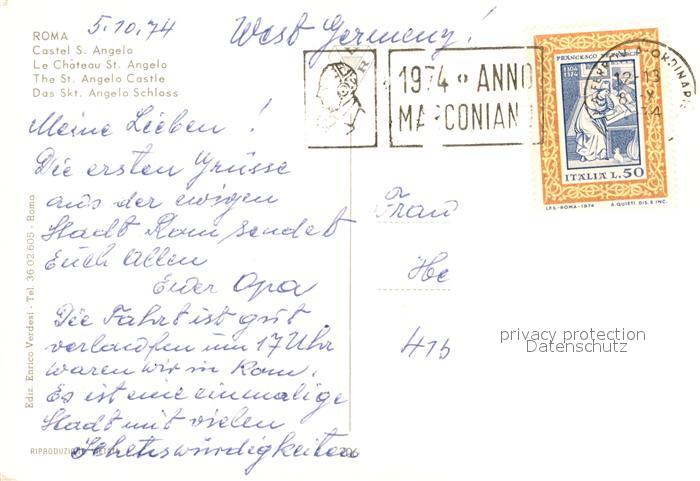 ROMA
Castel S. Angelo
Le Château St. Angelo
The St. Angelo Castle
Das Skt. Angelo Schloss
5.10.74
West Germany!
1974 ANNO
MARCONIAN
FRANCESCO PETRARCA
1304
1374
ITALIA L.50
I.P.S.-ROMA-1974 A. QUIETI DIS. E INC.
FERROVIA ORDINARIE
12-13
8 X
74
Meine Lieben!
Die ersten Grüsse
aus der ewigen
Stadt Rom sendet
Euch allen
Euer Opa
Die Fahrt ist gut
verlaufen um 17 Uhr
waren wir in Rom.
Es ist eine einmalige
Stadt mit vielen
Sehenswürdigkeiten
Frau
He
415
privacy protection
Datenschutz
Ediz. Enrico Verdesi - Tel. 36 02 605 - Roma
RIPRODUZIONE
206